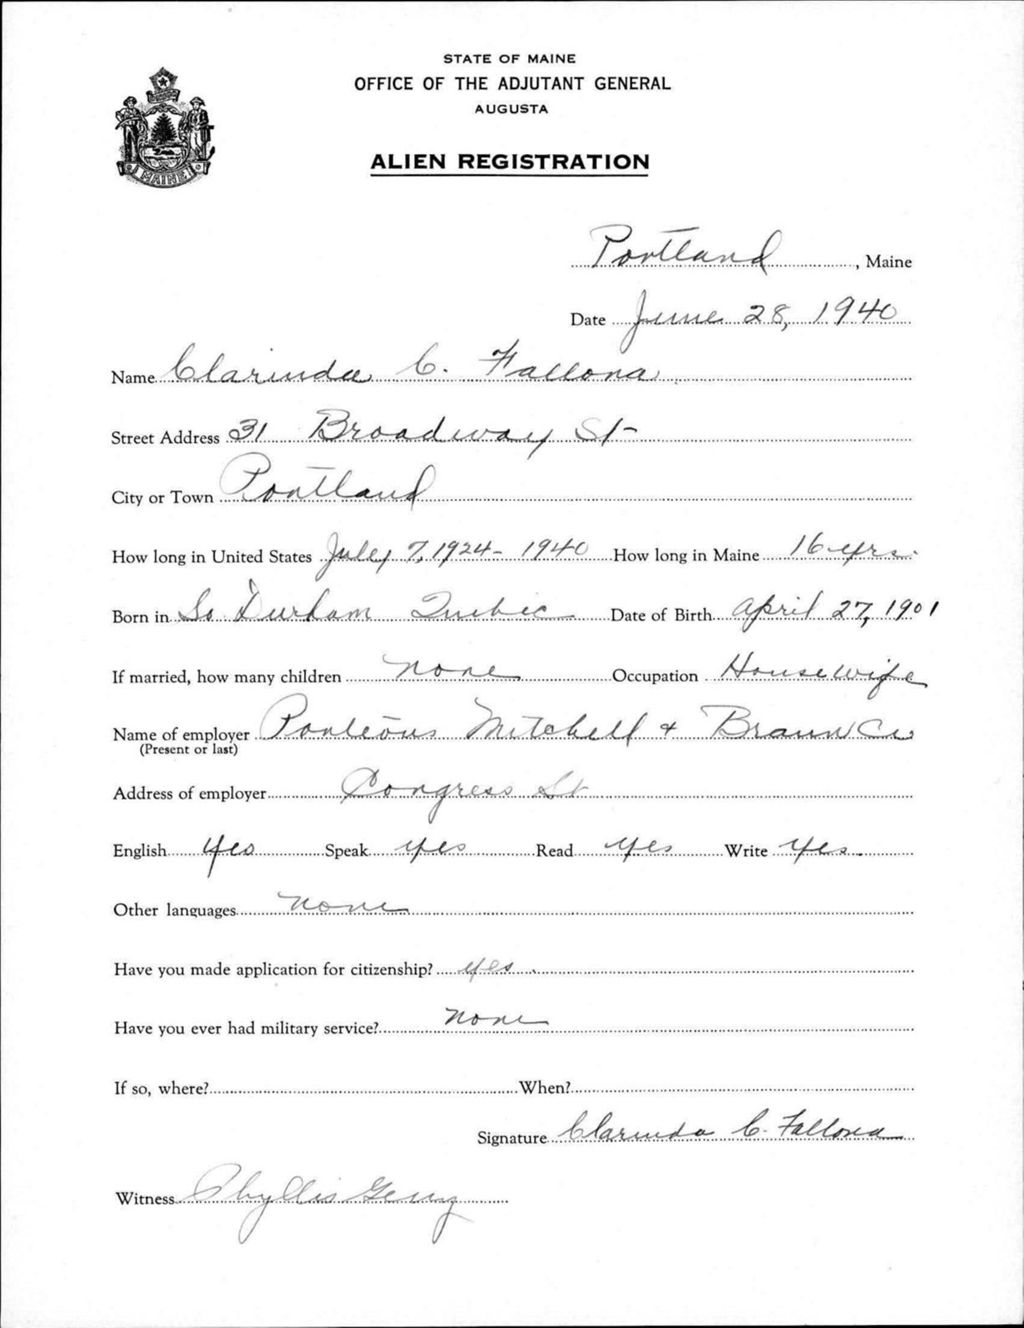 STATE OF MAINE
OFFICE OF THE ADJUTANT GENERAL
AUGUSTA
MAINE
ALIEN REGISTRATION
Portland, Maine
Date June 28, 1940
Name Clarinda C. Fallona
Street Address 31 Broadway St-
City or Town Portland
How long in United States July 7, 1924 - 1940 How long in Maine 16 yrs.
Born in So Durham Quebec Date of Birth April 27, 1901
If married, how many children none Occupation Housewife
Name of employer Porteous Mitchell + Braun Co
(Present or last)
Address of employer Congress St
English yes Speak yes Read yes Write yes.
Other languages none
Have you made application for citizenship? yes.
Have you ever had military service? none
If so, where? When?
Signature Clarinda C. Fallona
Witness Phyllis